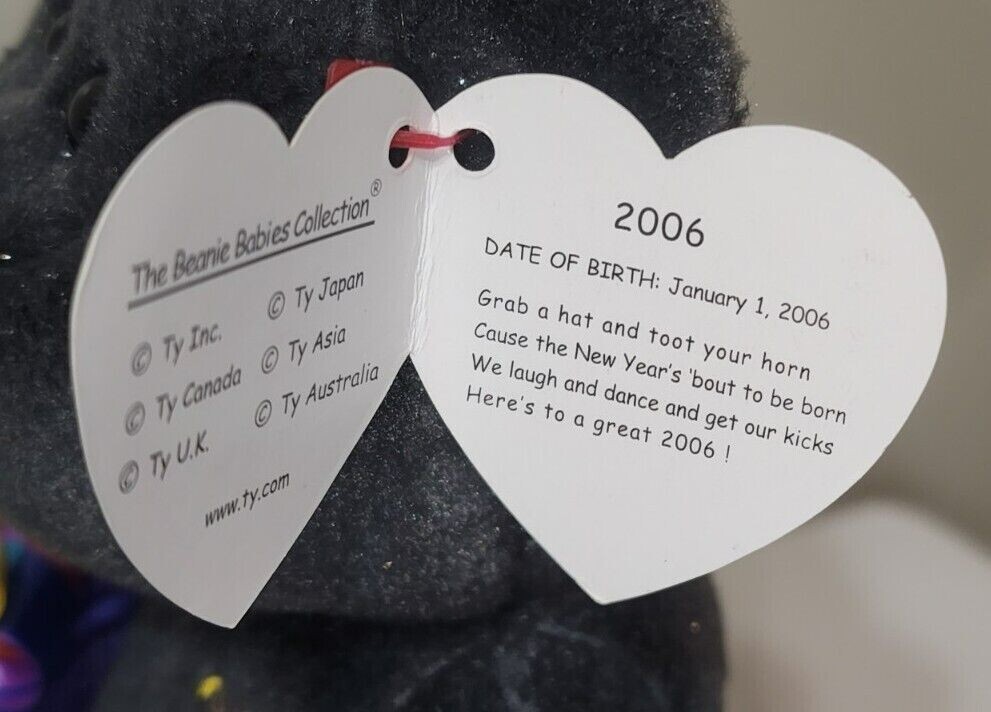 The Beanie Babies Collection®
© Ty Inc.
© Ty Canada
© Ty U.K.
© Ty Japan
© Ty Asia
© Ty Australia
www.ty.com
2006
DATE OF BIRTH: January 1, 2006
Grab a hat and toot your horn
Cause the New Year's 'bout to be born
We laugh and dance and get our kicks
Here's to a great 2006 !